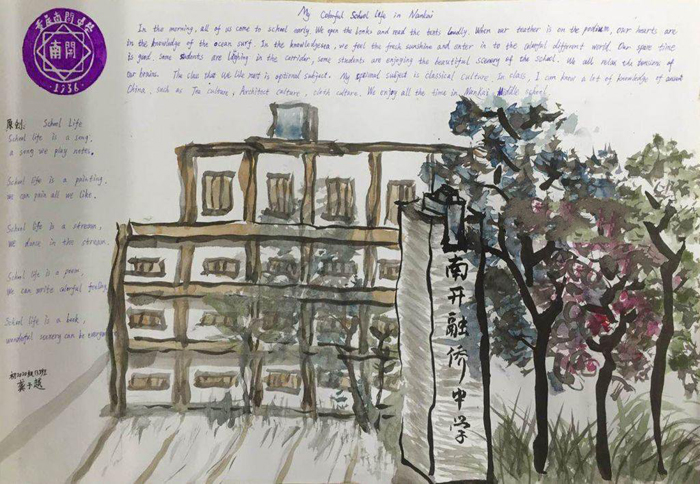 My Colorful School Life in Nankai
In the morning, all of us come to school early. We open the books and read the texts loudly. When our teather is on the podium, our hearts are
in the knowledge of the ocean surf. In the knowledge sea, we feel the fresh sunshine and enter in to the colorful different world. Our spare time
is good. Some students are in the corridor, some students are enjoying the beautiful scenery of the school. We all relax the of
our brains. The class that we like most is optional subject. My optional subject is classical culture. In class, I can know a lot of knowledge of
China, such as Tea culture, Architect culture, cloth culture. We enjoy all the time in NanKai Middle school.
南開
1936
原创: School Life
School life is a song,
a song we play notes.
School life is a painting,
we can pain all we like.
School life is a stream,
We dance in the stream.
School life is a poem,
We can write colorful
School life is a book,
wonderful scenery can be
龚子越
南开融侨中学